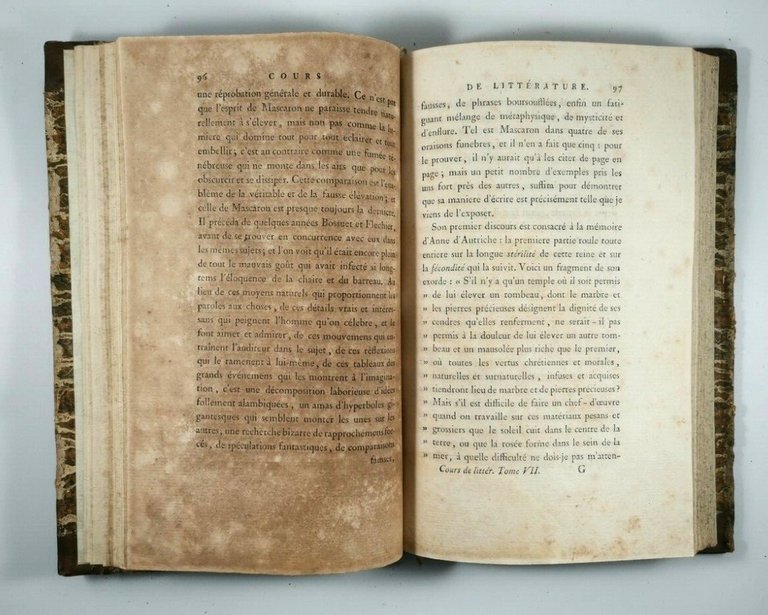 96 COURS
une réprobation générale et durable. Ce n'est pas
que l'esprit de Mascaron ne paraisse tendre natu-
rellement à s'élever, mais non pas comme la lu-
miere qui domine tout pour tout éclairer et tout
embellir; c'est au contraire comme une fumée té-
nébreuse qui ne monte dans les airs que pour les
obscurcir et se dissiper. Cette comparaison est l'em-
blême de la véritable et de la fausse élévation; et
celle de Mascaron est presque toujours la derniere.
Il précéda de quelques années Bossuet et Flechier,
avant de se trouver en concurrence avec eux dans
les mêmes sujets; et l'on voit qu'il était encore plein
de tout le mauvais goût qui avait infecté si long-
tems l'éloquence de la chaire et du barreau. Au
lieu de ces moyens naturels qui proportionnent les
paroles aux choses, de ces détails vrais et intéres-
sans qui peignent l'homme qu'on célebre, et le
font aimer et admirer, de ces mouvemens qui en-
traînent l'auditeur dans le sujet, de ces réflexions
qui le ramenent à lui-même, de ces tableaux des
grands événemens qui les montrent à l'imagina-
tion, c'est une décomposition laborieuse d'idées
follement alambiquées, un amas d'hyperboles gi-
gantesques qui semblent monter les unes sur les
autres, une recherche bizarre de rapprochemens for-
cés, de spéculations fantastiques, de comparaisons
fausses,
DE LITTÉRATURE. 97
fausses, de phrases boursoufflées, enfin un fati-
guant mélange de métaphysique, de mysticité et
d'enflure. Tel est Mascaron dans quatre de ses
oraisons funebres, et il n'en a fait que cinq: pour
le prouver, il n'y aurait qu'à les citer de page en
page; mais un petit nombre d'exemples pris les
uns fort près des autres, suffira pour démontrer
que sa maniere d'écrire est précisément telle que je
viens de l'exposer.
Son premier discours est consacré à la mémoire
d'Anne d'Autriche: la premiere partie roule toute
entiere sur la longue stérilité de cette reine et sur
la fécondité qui la suivit. Voici un fragment de son
exorde: « S'il n'y a qu'un temple où il soit permis
» de lui élever un tombeau, dont le marbre et
» les pierres précieuses désignent la dignité de ses
» cendres qu'elles renferment, ne serait-il pas
» permis à la douleur de lui élever un autre tom-
» beau et un mausolée plus riche que le premier,
» où toutes les vertus chrétiennes et morales,
» naturelles et surnaturelles, infuses et acquises
» tiendront lieu de marbre et de pierres précieuses?
» Mais s'il est difficile de faire un chef-d'œuvre
» quand on travaille sur ces matériaux pesans et
» grossiers que le soleil cuit dans le centre de la
» terre, ou que la rosée forme dans le sein de la
» mer, à quelle difficulté ne dois-je pas m'atten-
Cours de littér. Tome VII. G